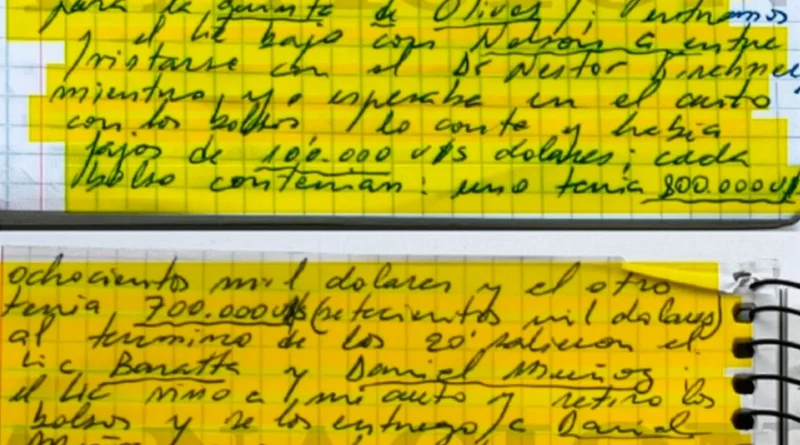 para la quinta de Olivos /, entramos
y el Lic bajo con Nelson a entre
/vistarse con el Dr Nestor Kirchner,
mientras yo esperaba en el auto
con los bolsos / lo conte y había
fajos de 100.000 u$s dolares; cada
bolso contenian: uno tenia 800.000 u$
ochocientos mil dolares y el otro
tenia 700.000 u$s (setecientos mil dolares)
al termino de los 20' salieron el
Lic Baratta y Daniel Muñoz
el Lic vino a mi auto y retiro los
bolsos y se los entrego a Daniel
Muñoz